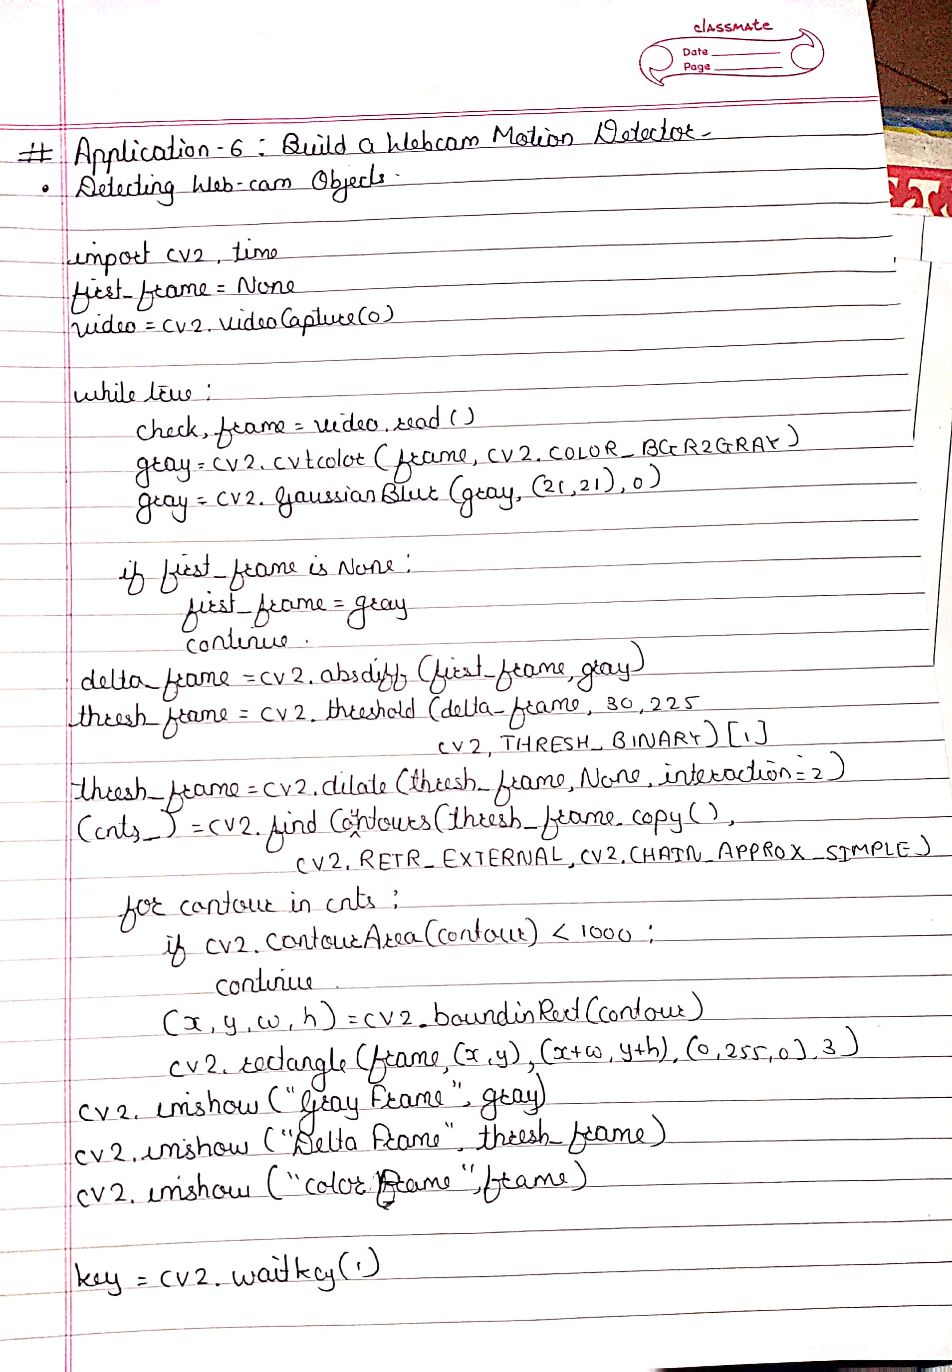 classmate
Date
Page
# Application-6 : Build a Webcam Motion Detector
• Detecting Web-cam Objects.
import cv2, time
first_frame = None
video = cv2.videoCapture(0)
while true :
check, frame = video.read()
gray = cv2.cvtcolor (frame, cv2.COLOR_BGR2GRAY)
gray = cv2.GaussianBlur (gray, (21,21), 0)
if first_frame is None :
first_frame = gray
continue.
delta_frame = cv2.absdiff (first_frame, gray)
thresh_frame = cv2.threshold (delta_frame, 30, 225
cv2, THRESH_BINARY) [1]
thresh_frame = cv2.dilate (thresh_frame, None, interaction=2)
(cnts_) = cv2.find Contours (thresh_frame.copy(),
cv2.RETR_EXTERNAL, cv2.CHAIN_APPROX_SIMPLE)
for contour in cnts :
if cv2.contourArea(contour) < 1000 :
continue
(x, y, w, h) = cv2.boundinRect(contour)
cv2.rectangle (frame, (x,y), (x+w, y+h), (0,255,0), 3)
cv2.imshow ("Gray Frame", gray)
cv2.imshow ("Delta Frame", thresh_frame)
cv2.imshow ("color Frame", frame)
key = cv2.waitkey(1)